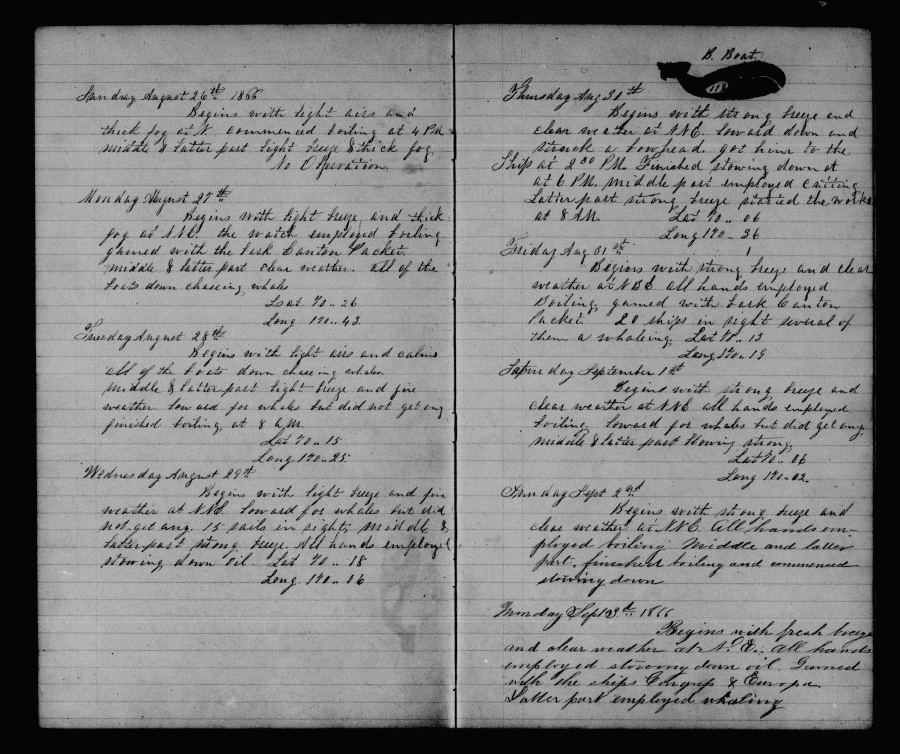 Sunday August 26th 1866
Begins with light airs and
thick fog at N. commenced boiling at 4 PM
middle & latter part light breeze & thick fog
No Observation.
Monday August 27th
Begins with light breeze and thick
fog at NNE. the watch employed boiling
gamed with the bark Canton Packet.
middle & latter part clear weather. all of the
boats down chaseing whales
Lat 70.. 26
Long 170.. 43.
Tuesday August 28th
Begins with light airs and calms
all of the boats down chaseing whales.
middle & latter part light breeze and fine
weather. lowared for whales but did not get any
finished boiling at 8 A.M.
Lat 70.. 15
Long 170.. 25.
Wednesday August 29th
Begins with light breeze and fin
weather at NNE lowared for whales but did
not get any. 15 sails in sight, middle &
latter part strong breeze. All hands employed
stowing down oil. Lat 70.. 18
Long 170.. 16
B. Boat.
Thursday Aug 30th
Begins with strong breeze and
clear weather at NNE. lowared down and
struck a bowhead. got him to the
Ship at 2 30 PM. Finished stowing down at
at 6 PM. middle part employed cutting
Latter part strong breeze started the works
at 8 AM. Lat 70.. 06
Long 170.. 36
Friday Aug 31st
Begins with strong breeze and clear
weather at NBE all hands employed
Boiling, gamed with bark Canton
Packet. 20 ships in sight several of
them a whaleing. Lat 70.. 13
Long 170.. 19
Saturday September 1st
Begins with strong breeze and
clear weather at NNE all hands employed
boiling lowared for whales but did get any.
middle & latter part blowing strong,
Lat 70.. 06
Long 170.. 02.
Sunday Sept 2nd
Begins with strong breeze and
clear weather at NNE. All hands em-
ployed boiling Middle and latter
part, finished boiling and commenced
stowing down
Monday Sept 3d 1866
Begins with fresh breeze
and clear weather at N.E. All hands
employed stowing down oil. Gamed
with the ships & Europa.
Latter part employed whaling